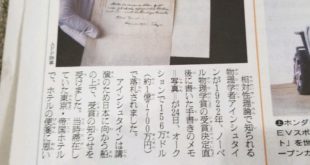 相対性理論で知られる
物理学者アインシュタイ
ンが1922年、ノーベ
ル物理学賞の受賞決定直
後に書いた手書きのメモ
＝写真＝が24日、オーク
ションで156万ドル
（約1億7700万円）
で落札されました。
アインシュタインは講
演のため日本に向かう船
の上で、受賞の知らせを
受けました。当時滞在し
ていた東京・帝国ホテル
で、ホテルの便箋に思い
ホンダ
EVスポ
ープン